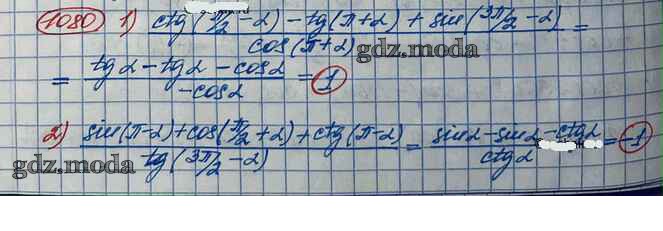 1080 1) (ctg(π/2 - α) - tg(π+α) + sin(3π/2 - α)) / cos(π+α) =
gdz.moda
= (tgα - tgα - cosα) / -cosα = 1
2) (sin(π-α) + cos(π/2 + α) + ctg(π-α)) / tg(3π/2 - α) = (sinα - sinα - ctgα) / ctgα = -1
gdz.moda